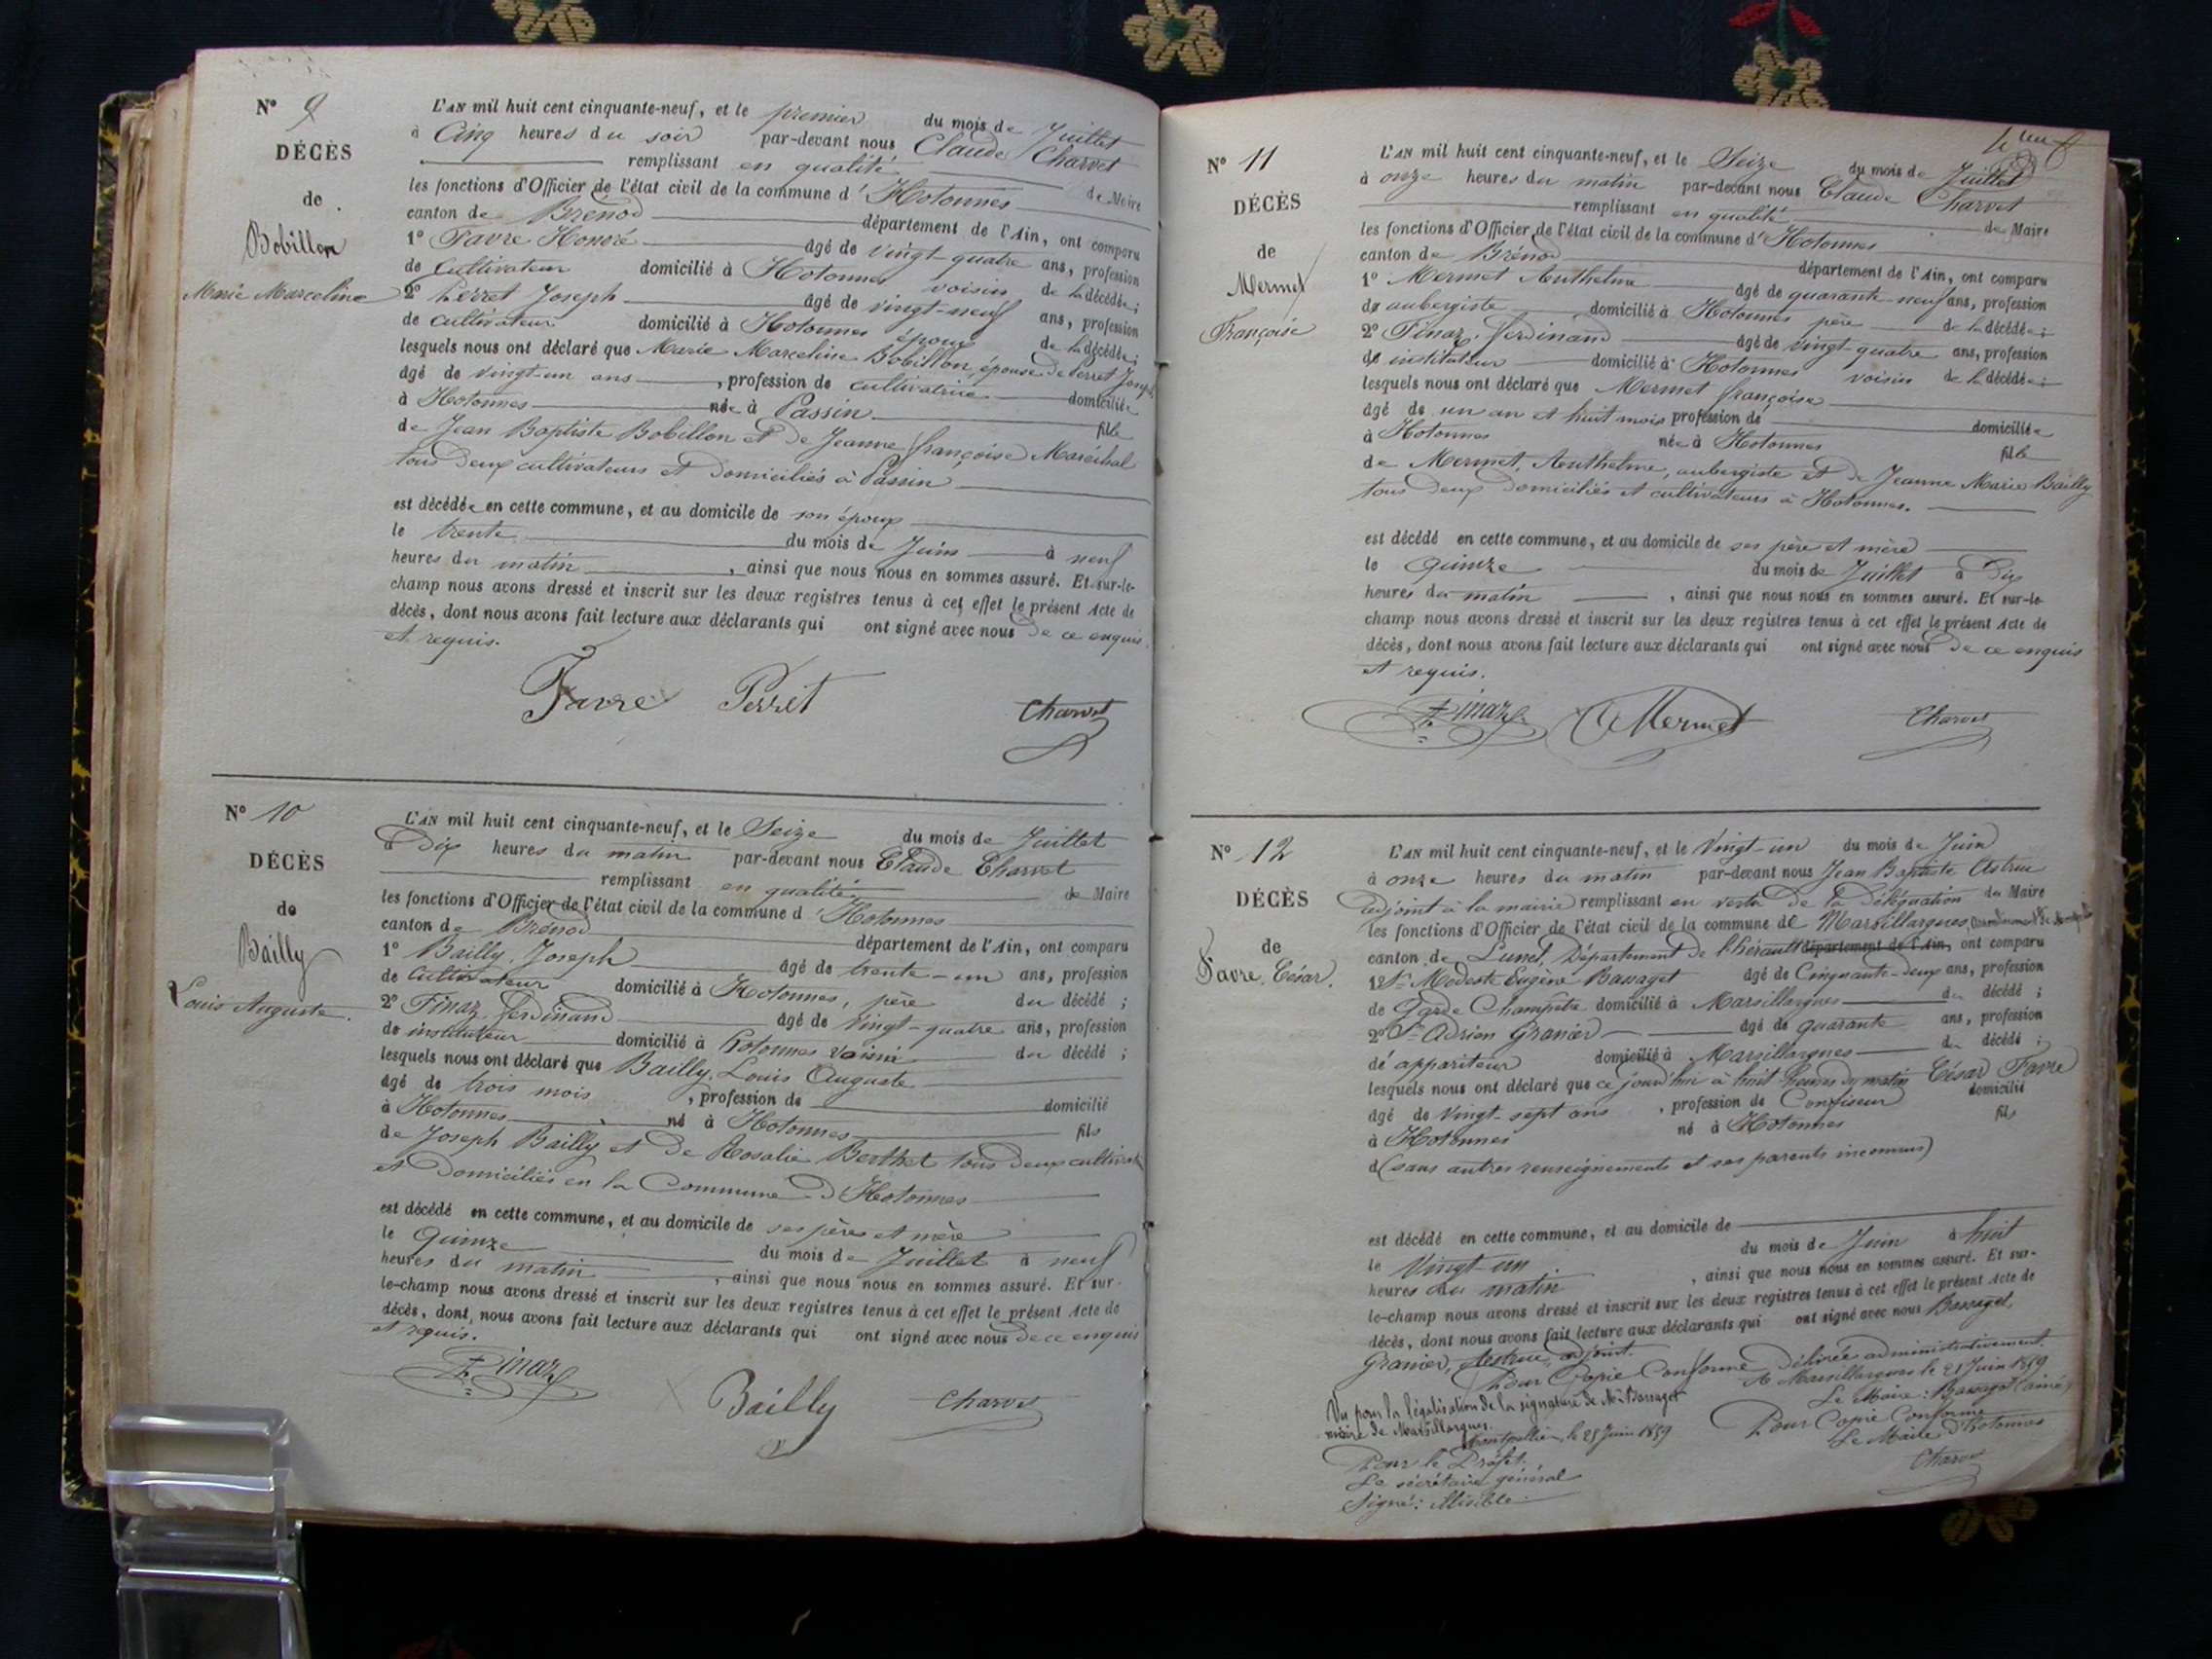 N° 9
DÉCÈS
de
Bobillon
Marie Marceline
L'AN mil huit cent cinquante-neuf, et le premier du mois de Juillet
à Cinq heures du soir par-devant nous Claude Charvet
remplissant en qualité de Maire
les fonctions d'Officier de l'état civil de la commune d'Hotonnes
canton de Brénod département de l'Ain, ont comparu
1° Favre Honoré âgé de vingt-quatre ans, profession
de Cultivateur domicilié à Hotonnes voisin de la décédée;
2° Perret Joseph âgé de vingt-neuf ans, profession
de cultivateur domicilié à Hotonnes époux de la décédée;
lesquels nous ont déclaré que Marie Marceline Bobillon, épouse de Perret Joseph
âgé de vingt-un ans, profession de cultivatrice domiciliée
à Hotonnes née à Passin fille
de Jean Baptiste Bobillon et de Jeanne françoise Maréchal
tous deux cultivateurs et domiciliés à Passin
est décédée en cette commune, et au domicile de son époux
le trente du mois de Juin à neuf
heures du matin, ainsi que nous nous en sommes assuré. Et sur-le-
champ nous avons dressé et inscrit sur les deux registres tenus à cet effet le présent Acte de
décès, dont nous avons fait lecture aux déclarants qui ont signé avec nous de ce enquis
et requis.
Favre Perret Charvet
N° 10
DÉCÈS
de
Bailly
Louis Auguste.
L'AN mil huit cent cinquante-neuf, et le Seize du mois de Juillet
à Dix heures du matin par-devant nous Claude Charvet
remplissant en qualité de Maire
les fonctions d'Officier de l'état civil de la commune d'Hotonnes
canton de Brénod département de l'Ain, ont comparu
1° Bailly, Joseph âgé de trente-un ans, profession
de Cultivateur domicilié à Hotonnes, père du décédé;
2° Pinaz, ferdinand âgé de vingt-quatre ans, profession
de instituteur domicilié à hotonnes voisin du décédé;
lesquels nous ont déclaré que Bailly, Louis Auguste
âgé de trois mois, profession de domicilié
à Hotonnes né à Hotonnes fils
de Joseph Bailly et de Rosalie Berthet tous deux cultivat
et domiciliés en la Commune d'Hotonnes
est décédé en cette commune, et au domicile de ses père et mère
le quinze du mois de Juillet à neuf
heures du matin, ainsi que nous nous en sommes assuré. Et sur-
le-champ nous avons dressé et inscrit sur les deux registres tenus à cet effet le présent Acte de
décès, dont nous avons fait lecture aux déclarants qui ont signé avec nous de ce enquis
et requis.
Pinaz Bailly Charvet
N° 11
DÉCÈS
de
Mermet
Françoise
L'AN mil huit cent cinquante-neuf, et le Seize du mois de Juillet
à onze heures du matin par-devant nous Claude Charvet
remplissant en qualité de Maire
les fonctions d'Officier de l'état civil de la commune d'Hotonnes
canton de Brénod département de l'Ain, ont comparu
1° Mermet Anthelme âgé de quarante-neuf ans, profession
de aubergiste domicilié à Hotonnes père de la décédée;
2° Pinaz, ferdinand âgé de vingt-quatre ans, profession
de instituteur domicilié à Hotonnes voisin de la décédée;
lesquels nous ont déclaré que Mermet françoise
âgé de un an et huit mois profession de domiciliée
à Hotonnes née à Hotonnes fille
de Mermet, Anthelme, aubergiste et de Jeanne Marie Bailly
tous deux domiciliés et cultivateurs à Hotonnes.
est décédé en cette commune, et au domicile de ses père et mère
le quinze du mois de Juillet à Dix
heures du matin, ainsi que nous nous en sommes assuré. Et sur-le-
champ nous avons dressé et inscrit sur les deux registres tenus à cet effet le présent Acte de
décès, dont nous avons fait lecture aux déclarants qui ont signé avec nous de ce enquis
et requis.
Pinaz Mermet Charvet
N° 12
DÉCÈS
de
Favre, César.
L'AN mil huit cent cinquante-neuf, et le Vingt-un du mois de Juin
à onze heures du matin par-devant nous Jean Baptiste Astruc
adjoint à la mairie remplissant en vertu de la délégation du Maire
les fonctions d'Officier de l'état civil de la commune de Marsillargues
canton de Lunel, Département de l'hérault département de l'Ain, ont comparu
1° Sr Modeste Eugène Bassaget âgé de Cinquante-deux ans, profession
de Garde Champêtre domicilié à Marsillargues du décédé;
2° Sr Adrien Granier âgé de quarante ans, profession
d'appariteur domicilié à Marsillargues du décédé;
lesquels nous ont déclaré que ce jourd'hui à huit heures du matin César Favre
âgé de vingt-sept ans, profession de Confiseur domicilié
à Hotonnes né à Hotonnes fils
d (sans autres renseignements et ses parents inconnus)
est décédé en cette commune, et au domicile de
le Vingt-un du mois de Juin à huit
heures du matin, ainsi que nous nous en sommes assuré. Et sur-
le-champ nous avons dressé et inscrit sur les deux registres tenus à cet effet le présent Acte de
décès, dont nous avons fait lecture aux déclarants qui ont signé avec nous Bassaget,
Granier, Astruc, adjoint.
Pour Copie Conforme délivrée administrativement.
A Marsillargues le 21 Juin 1859
Le Maire: Bassaget (ainé)
Vu pour la légalisation de la signature de Mr Bassaget
maire de Marsillargues.
Montpellier, le 25 Juin 1859
Pour le Préfet.
Le secrétaire général
Signé: illisible
Pour Copie Conforme
Le Maire d'Hotonnes
Charvet